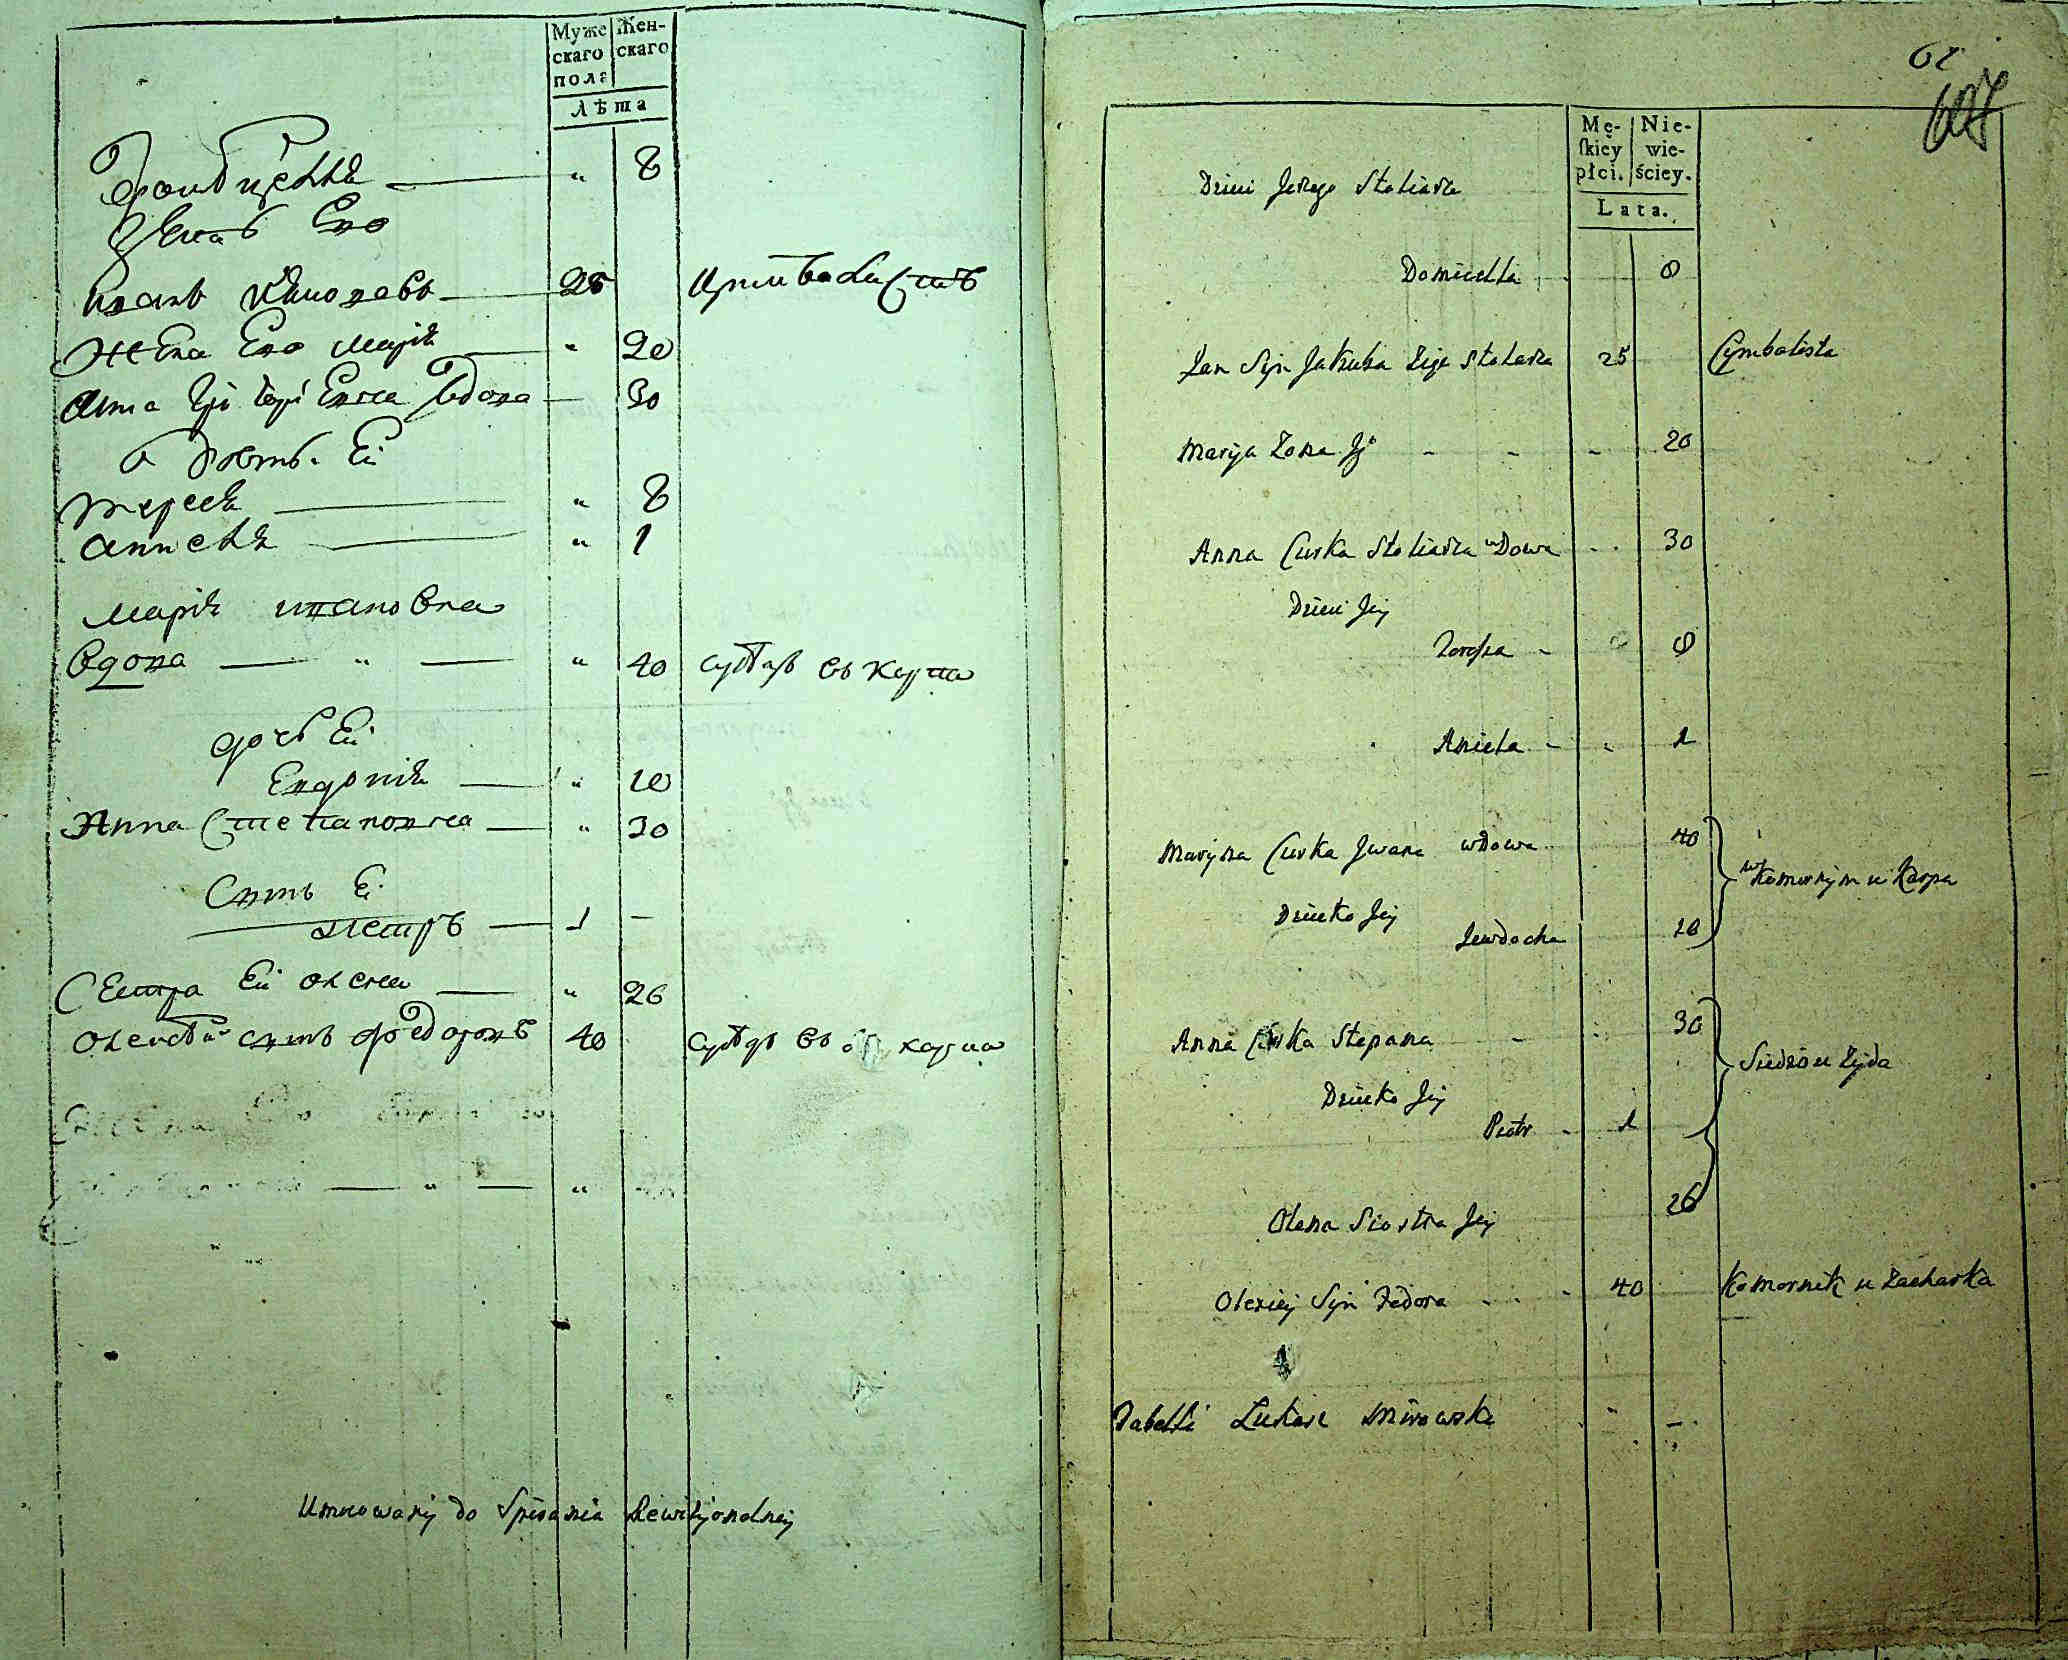 Муже
скаго
пола
Жен-
скаго
Лѣта
" 8
Иванъ 25 Цымбалистъ
Жена Его Марія " 20
Анна Вдова 30
Ей
Тереса " 8
Анисья " 1
Марія Ивановна
Вдова " " 40 сусѣдъ въ Карпа
дочь Ей
Евдокія " 10
Анна Степановна " 30
Сынъ Ей
Петръ 1
Сестра Ей Олена " 26
Олексѣй сынъ Федоровъ 40 сусѣдъ въ Карпа
Umocowany do Spisania Rewizyonalney
61
Mę-
skiey
płci.
Nie-
wie-
ściey.
Lata.
Dzieci Jerzego Stoliarza
Domicella 8
Jan Syn Jakuba Stolarza 25 Cymbalista
Maryia Zona Jo 20
Anna Curka Stoliarza wDowa 30
Dzieci Jey
8
Aniela 1
Maryna Curka Jwana wdowa 40
w Komornym u Karpa
Dziecko Jey
Jewdocha 10
Anna Curka Stepana 30
Siedzi u Żyda
Dziecko Jey
Piotr 1
Olena Siostra Jey 26
Olexiey Syn Fedora 40 Komornik u Zacharka
Tabelli Łukasz Mirowski